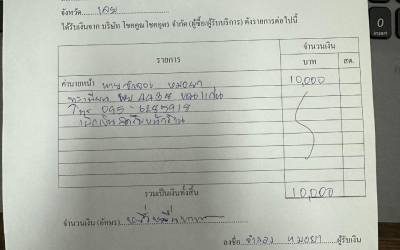 จังหวัด เลย
ได้รับเงินจาก บริษัท โชคคูณโชคยุพร จำกัด (ผู้ซื้อ/ผู้รับบริการ) ดังรายการต่อไปนี้
รายการ จำนวนเงิน
บาท สต.
ค่านายหน้า นาย หมอยา 10,000
ทะเบียน ขอนแก่น
โทร 095-6285918
รวมเป็นเงินทั้งสิ้น 10,000
จำนวนเงิน (อักษร) หนึ่งหมื่นบาท
ลงชื่อ หมอยา ผู้รับเงิน
0
insert